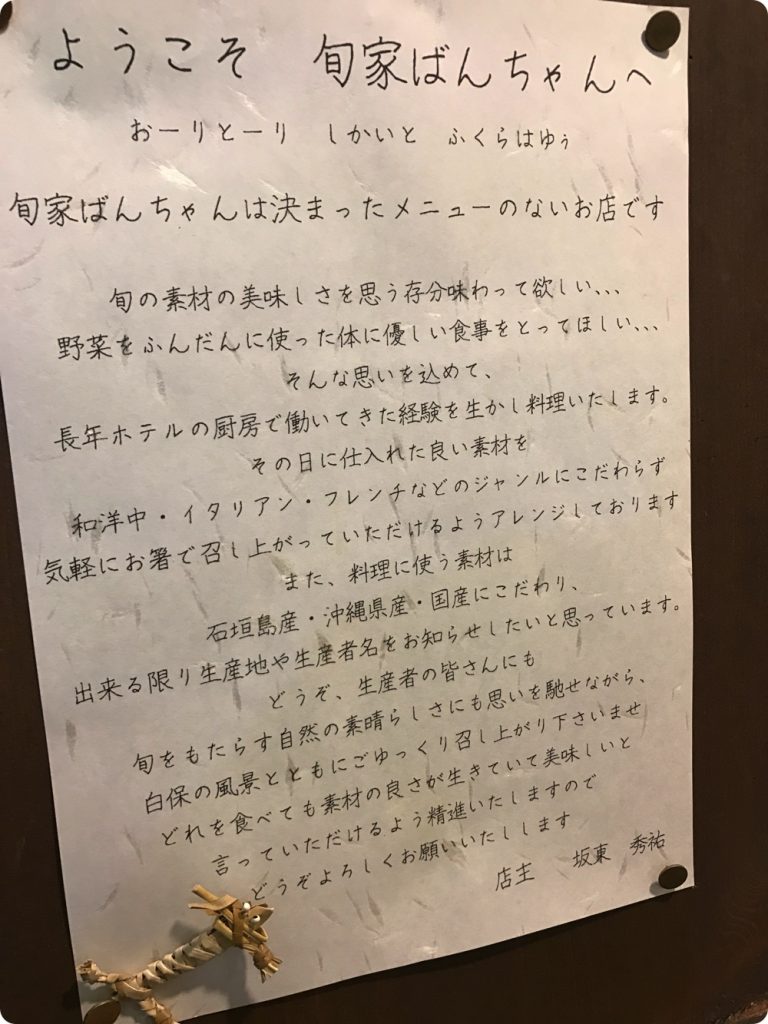 ようこそ 旬家ばんちゃんへ
おーりとーり しかいと ふくらはゆぅ
旬家ばんちゃんは決まったメニューのないお店です
旬の素材の美味しさを思う存分味わって欲しい、、、
野菜をふんだんに使った体に優しい食事をとってほしい、、、
そんな思いを込めて、
長年ホテルの厨房で働いてきた経験を生かし料理いたします。
その日に仕入れた良い素材を
和洋中・イタリアン・フレンチなどのジャンルにこだわらず
気軽にお箸で召し上がっていただけるようアレンジしております
また、料理に使う素材は
石垣島産・沖縄県産・国産にこだわり、
出来る限り生産地や生産者名をお知らせしたいと思っています。
どうぞ、生産者の皆さんにも
旬をもたらす自然の素晴らしさにも思いを馳せながら、
白保の風景とともにごゆっくり召し上がり下さいませ
どれを食べても素材の良さが生きていて美味しいと
言っていただけるよう精進いたしますので
どうぞよろしくお願いいたしします
店主 坂東 秀祐